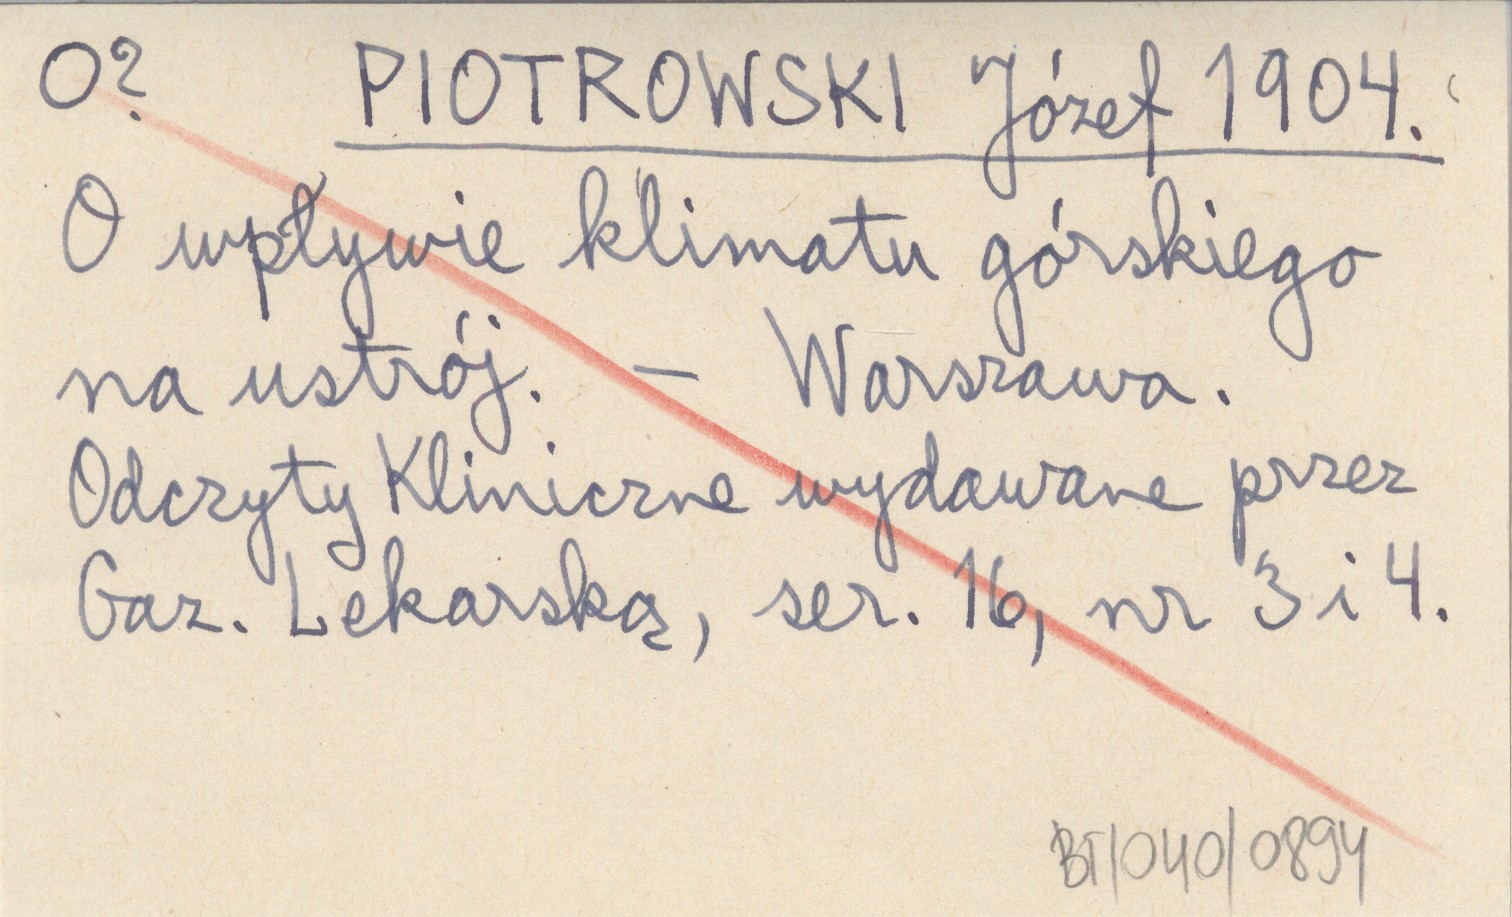 O? PIOTROWSKI Józef 1904.
O wpływie klimatu górskiego
na ustrój. – Warszawa.
Odczyty Kliniczne wydawane przez
Gaz. Lekarską, ser. 16, nr 3 i 4.
BT/040/0894